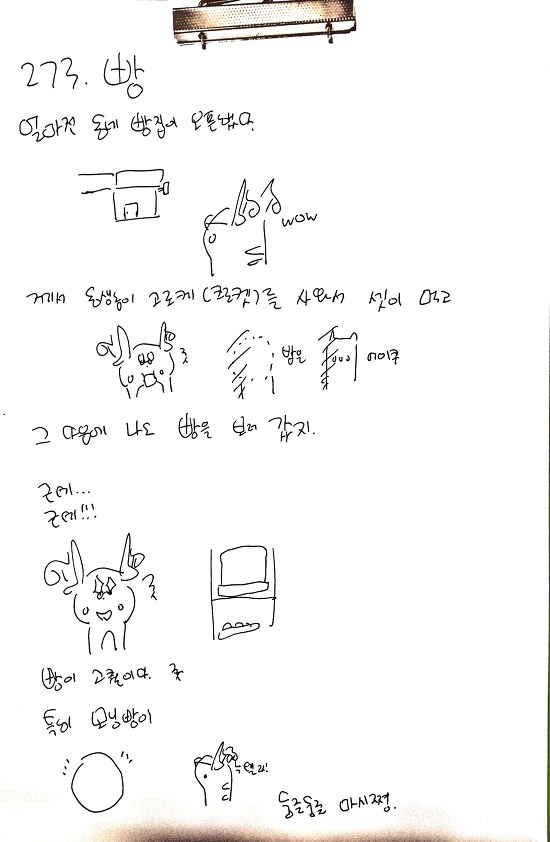 273. 빵
얼마전 동네 빵집이 오픈했다.
wow
거기서 동생놈이 고로케(크로켓?)를 사와서 셋이 먹고
굿
밤은
에이쿠
그 다음에 나도 빵을 보러 갔지.
근데...
근데!!!
굿
빵이 고퀄이다. 굿
특히 모닝빵이
둥글둥글 마시쪙.